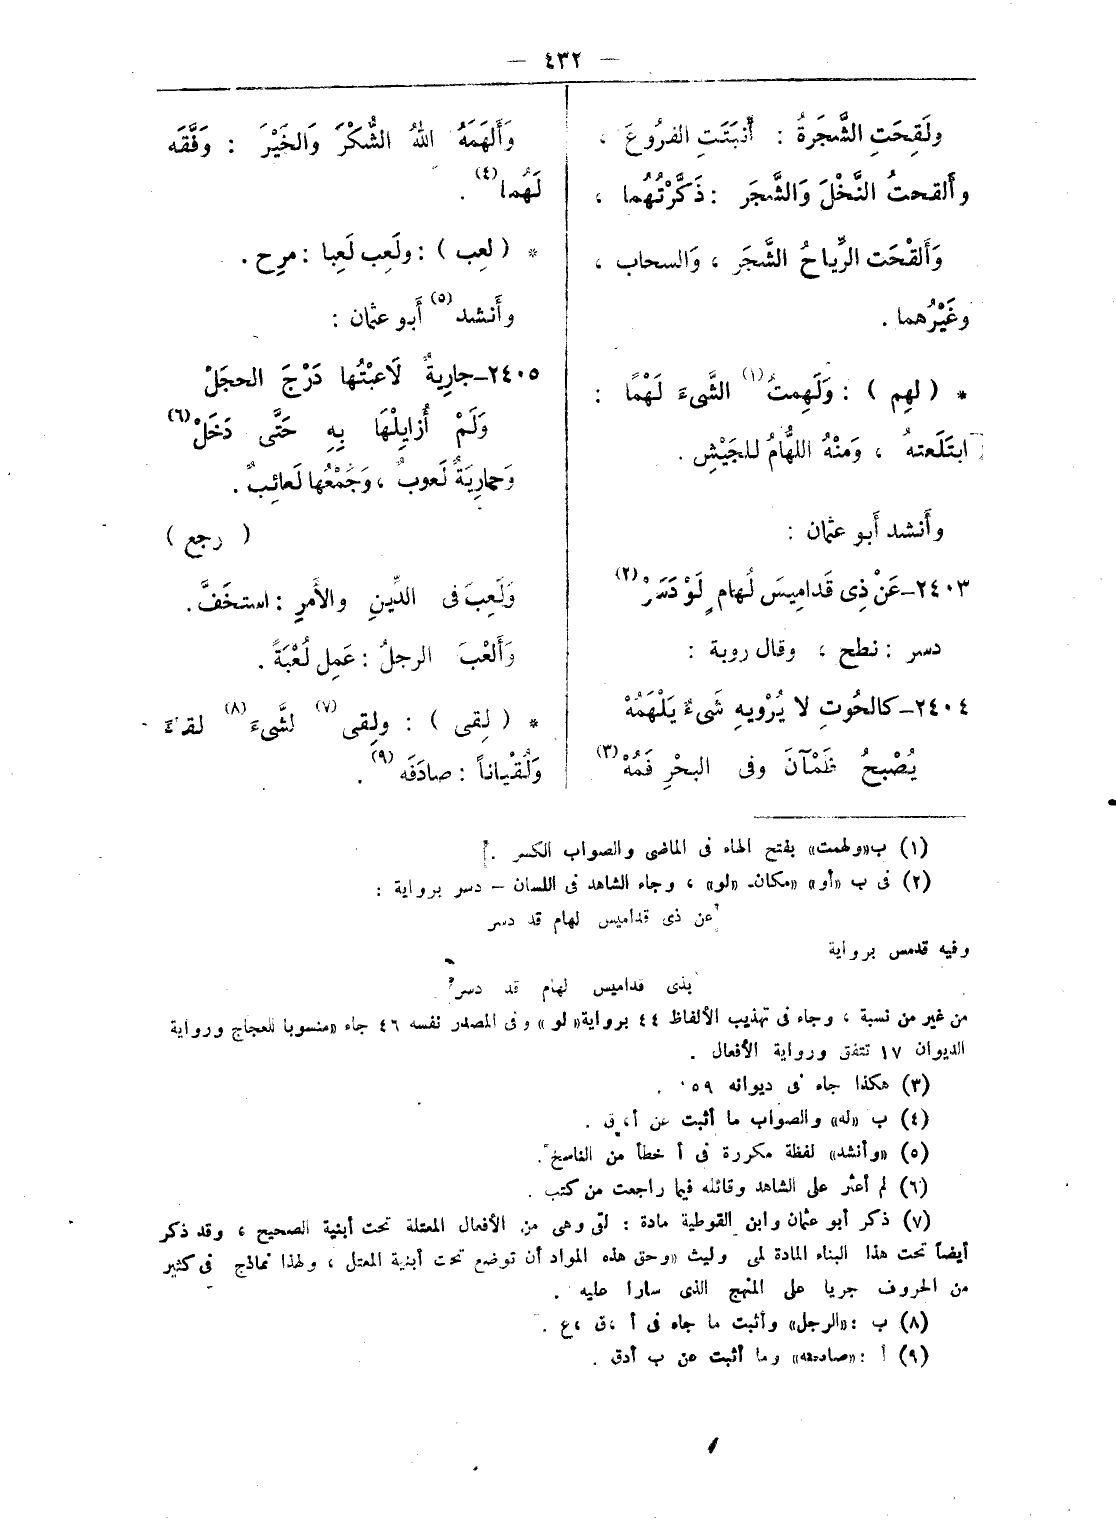 — ٤٣٢ —
ولَقِحَتِ الشَّجَرةُ : أَنبَتَتِ الفروعَ ،
وأَلقحتُ النَّخْلَ وَالشَّجَر : ذَكَّرْتُهُما ،
وَأَلقْحَت الرِّياحُ الشَّجَر ، وَالسحاب ،
وغَيْرُهما .
* ( لهِم ) : وَلَهِمتُ(١) الشَّىءَ لَهْمًا :
ابتَلَعتهُ ، وَمنْهُ اللهَّامُ للجَيْشِ .
وأَنشد أَبو عثمان :
٢٤٠٣ـ عَنْ ذِى قَدامِيسَ لُهام ٍ لَوْ دَسَرْ(٢)
دسر : نطح ، وقال روبة :
٢٤٠٤ـ كالحُوتِ لا يُرْويهِ شَىءٌ يَلْهَمُهْ
يُصْبحُ ظَمْآنَ وفى البحْرِ فَمُهْ(٣)
وَأَلهَمَهُ اللهُ الشُّكْرَ وَالخَيْرَ : وَفَّقَه
لَهُما(٤) .
* ( لعِب ) : ولَعِب لَعِبا : مرِح .
وأَنشد(٥) أَبو عثمان :
٢٤٠٥ـ جارِيةٌ لَاعبْتُها دَرْجَ الحجَلْ
وَلَمْ أُزايِلْهَا بِهِ حَتَّى دَخَلْ(٦)
وَجارِيَةٌ لَعوبٌ ، وَجَمْعُها لَعائِبٌ .
( رجع )
وَلَعِبَ فى الدِّينِ والأَمرِ : استخَفَّ .
وَأَلعْبَ الرجلُ : عَمِل لُعْبَةً .
* ( لِقى ) : ولِقى(٧) لشَّىءَ(٨) لقاءً
وَلُقْياناً : صادَفَه(٩) .
(١) ب«ولهمت» بفتح الهاء فى الماضى والصواب الكسر .
(٢) فى ب «أو» «مكان» «لو» ، وجاء الشاهد فى اللسان – دسر برواية :
عن ذى قداميس لهام قد دسر
وفيه قدمس برواية
بذى قداميس لهام قد دسر
من غير من نسبة ، وجاء فى تهذيب الألفاظ ٤٤ برواية«لو» وفى المصدر نفسه ٤٦ جاء «منسوبا للعجاج ورواية
الديوان ١٧ تتفق ورواية الأفعال .
(٣) هكذا جاء فى ديوانه ٥٩ .
(٤) ب «له» والصواب ما أثبت عن أ، ق .
(٥) «وأنشد» لفظة مكررة فى أ خطأ من الناسخ .
(٦) لم أعثر على الشاهد وقائله فيما راجعت من كتب .
(٧) ذكر أبو عثمان وابن القوطية مادة : لقى وهى من الأفعال المعتلة تحت أبنية الصحيح ، وقد ذكر
أيضاً تحت هذا البناء المادة لمى وليث «وحق هذه المواد أن توضع تحت أبنية المعتل ، ولهذا نماذج فى كثير
من الحروف جريا على المنهج الذى سارا عليه .
(٨) ب :«الرجل» وأثبت ما جاء فى أ ،ق ،ع .
(٩) أ :«صادفه» وما أثبت عن ب أدق .